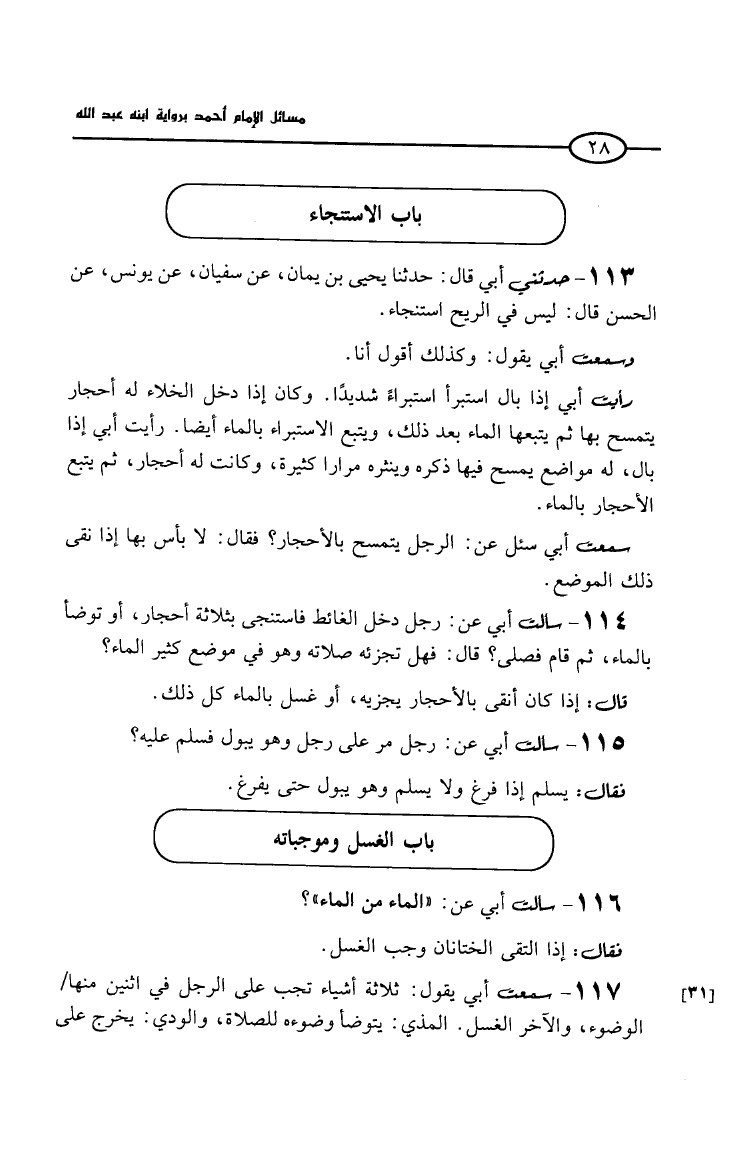 مسائل الإمام أحمد برواية ابنه عبد الله
٢٨
باب الاستنجاء
١١٣- حدثني أبي قال: حدثنا يحيى بن يمان، عن سفيان، عن يونس، عن
الحسن قال: ليس في الريح استنجاء.
وسمعت أبي يقول: وكذلك أقول أنا.
رأيت أبي إذا بال استبرأ استبراءً شديدًا. وكان إذا دخل الخلاء له أحجار
يتمسح بها ثم يتبعها الماء بعد ذلك، ويتبع الاستبراء بالماء أيضا. رأيت أبي إذا
بال، له مواضع يمسح فيها ذكره وينثره مرارا كثيرة، وكانت له أحجار، ثم يتبع
الأحجار بالماء.
سمعت أبي سئل عن: الرجل يتمسح بالأحجار؟ فقال: لا بأس بها إذا نقى
ذلك الموضع.
١١٤- سالت أبي عن: رجل دخل الغائط فاستنجى بثلاثة أحجار، أو توضأ
بالماء، ثم قام فصلى؟ قال: فهل تجزئه صلاته وهو في موضع كثير الماء؟
قال: إذا كان أنقى بالأحجار يجزيه، أو غسل بالماء كل ذلك.
١١٥- سالت أبي عن: رجل مر على رجل وهو يبول فسلم عليه؟
فقال: يسلم إذا فرغ ولا يسلم وهو يبول حتى يفرغ.
باب الغسل وموجباته
١١٦- سالت أبي عن: «الماء من الماء»؟
فقال: إذا التقى الختانان وجب الغسل.
١١٧- سمعت أبي يقول: ثلاثة أشياء تجب على الرجل في اثنين منها/ [٣١]
الوضوء، والآخر الغسل. المذي: يتوضأ وضوءه للصلاة، والودي: يخرج على